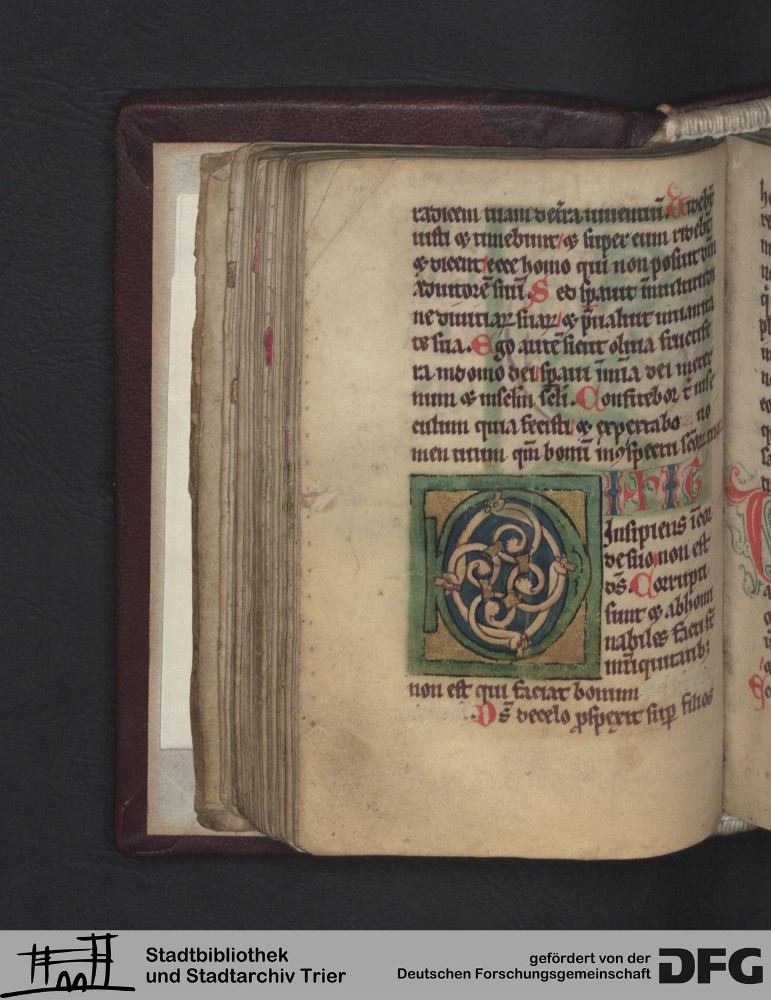 radicem tuam de t̄ra uiuentiū. Videbt̄
iusti & timebunt / & super eum ridebt̄
& dicent / ecce homo qui non posuit dm̄
adiutorē suū. S ed spauit ī multitudi
ne diuitiaꝝ suaꝝ / & p̄ualuit in uanita
te sua. Ego autē sicut oliua fructife
ra in domo dei spaui ī mīa dei mei ī et̄
num & in sc̄lm sc̄li. Confitebor t̄ in sc̄
culum quia fecisti & expectabo no
men tuum qm̄ bonū in ꝯspectu sc̄oꝝ tuoꝝ
DIXIT
Insipiens ī cor
de suo non est
ds̄. Corrupti
sunt & abhomi
nabiles facti st̄
in iniquitatib;
non est qui faciat bonum
Ds̄ de celo ꝓspexit sup filios
Stadtbibliothek
und Stadtarchiv Trier
gefördert von der
Deutschen Forschungsgemeinschaft
DFG